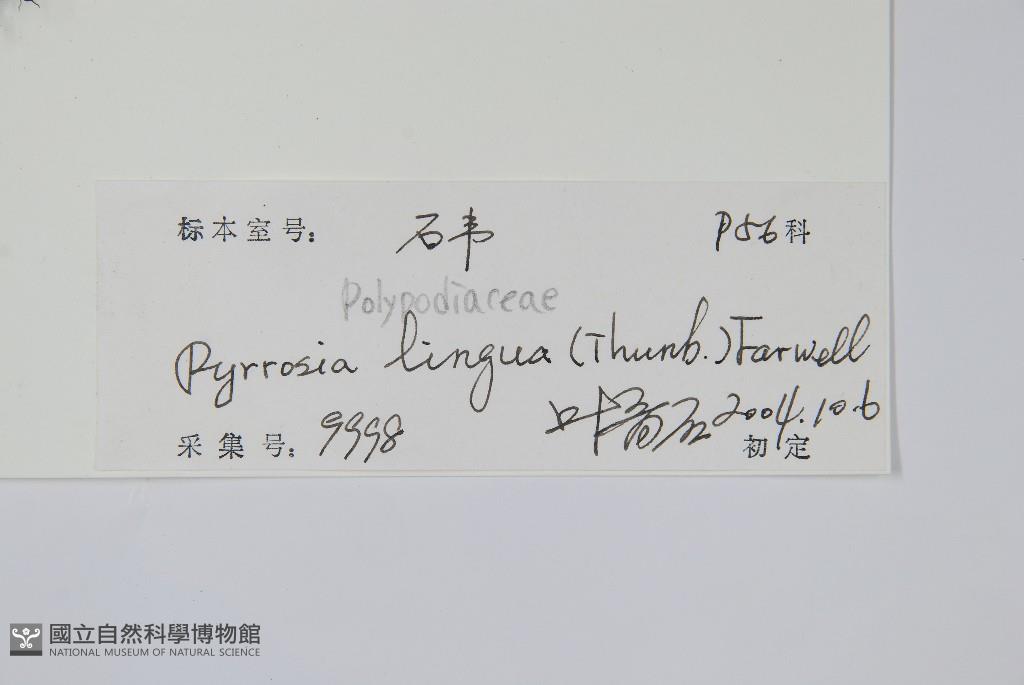 标本室号: 石韦 P56科
Polypodiaceae
Pyrrosia lingua (Thunb.) Farwell
采集号: 9998 叶 2004.10.6
初定
國立自然科學博物館
NATIONAL MUSEUM OF NATURAL SCIENCE